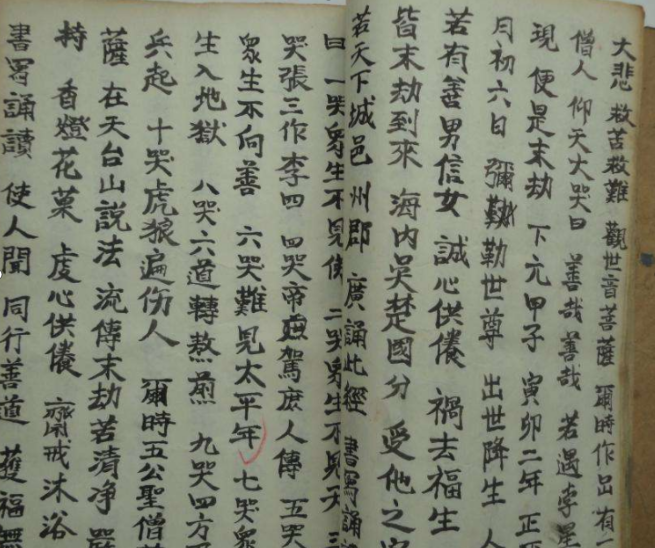 大悲救苦救難 觀世音菩薩 爾時作出有一
僧人 仰天大哭曰 善哉善哉 若遇孛星
現 便是末劫 下元甲子 寅卯二年 正
月初六日 彌勒世尊 出世降生 人
若有善男信女 誠心供養 禍去福生
皆末劫到來 海内吳楚國分 受他之
若天下城邑 州郡 廣誦此經 書寫誦
曰 一哭眾生不見 二哭眾生不見 三
哭張三作李四 四哭帝 駕庶人傳 五哭
眾生不向善 六哭難見太平年 七哭眾
生入地獄 八哭六道轉熬煎 九哭四方
兵起 十哭虎狼遍伤人 爾時五公聖僧菩
薩 在天台山説法 流傳末劫若清净 嚴
持 香燈花菓 虔心供養 齋戒沐浴
書寫誦讀 使人聞 同行善道 獲福無